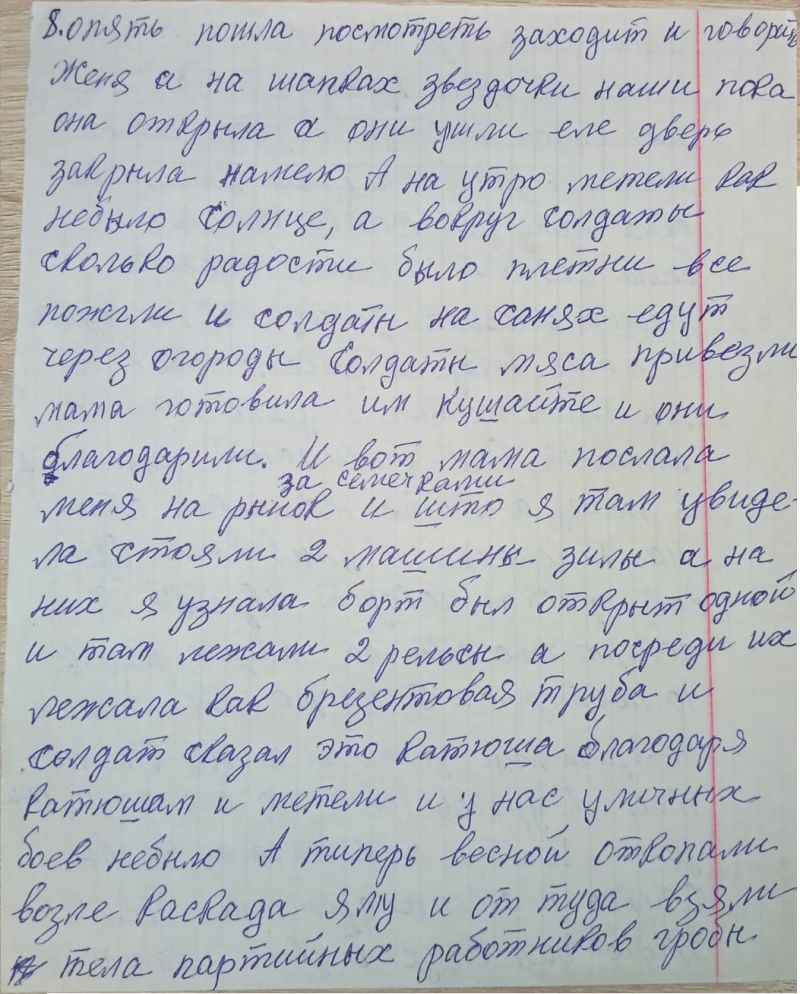 8. опять пошла посмотреть заходит и говорить
Женя а на шапках звездочки наши пока
она открыла а они ушли еле дверь
закрыла намело А на утро метели как
небыло солнце, а вокруг солдаты
сколько радости было плетни все
пожгли и солдаты на санях едут
через огороды Солдаты мяса привезли
мама готовила им кушайте и они
благодарили. И вот мама послала
за семечками
меня на рынок и што я там увиде-
ла стояли 2 машины зилы а на
них я узнала борт был открыт одной
и там лежали 2 рельсы а посреди их
лежала как брезентовая труба и
солдат сказал это катюша благодаря
катюшам и метели и у нас уличных
боев небыло А типерь весной откопали
возле каскада яму и от туда взяли
тела партийных работников гробы